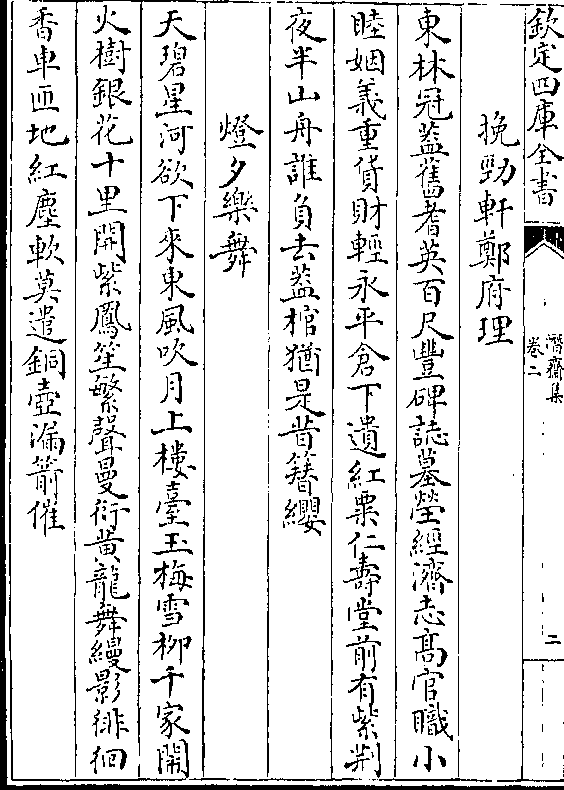 欽定四庫全書
潛齋集
卷二
二
挽勁軒鄭府理
東林冠蓋舊耆英百尺豐碑誌墓塋經濟志高官職小
睦姻義重貨財輕永平倉下遺紅粟仁壽堂前有紫荆
夜半山舟誰負去蓋棺猶是昔簪纓
燈夕樂舞
天碧星河欲下來東風吹月上樓臺玉梅雪柳千家閙
火樹銀花十里開紫鳳笙繁聲曼衍黄龍舞縵影徘徊
香車匝地紅塵軟莫遣銅壺漏箭催